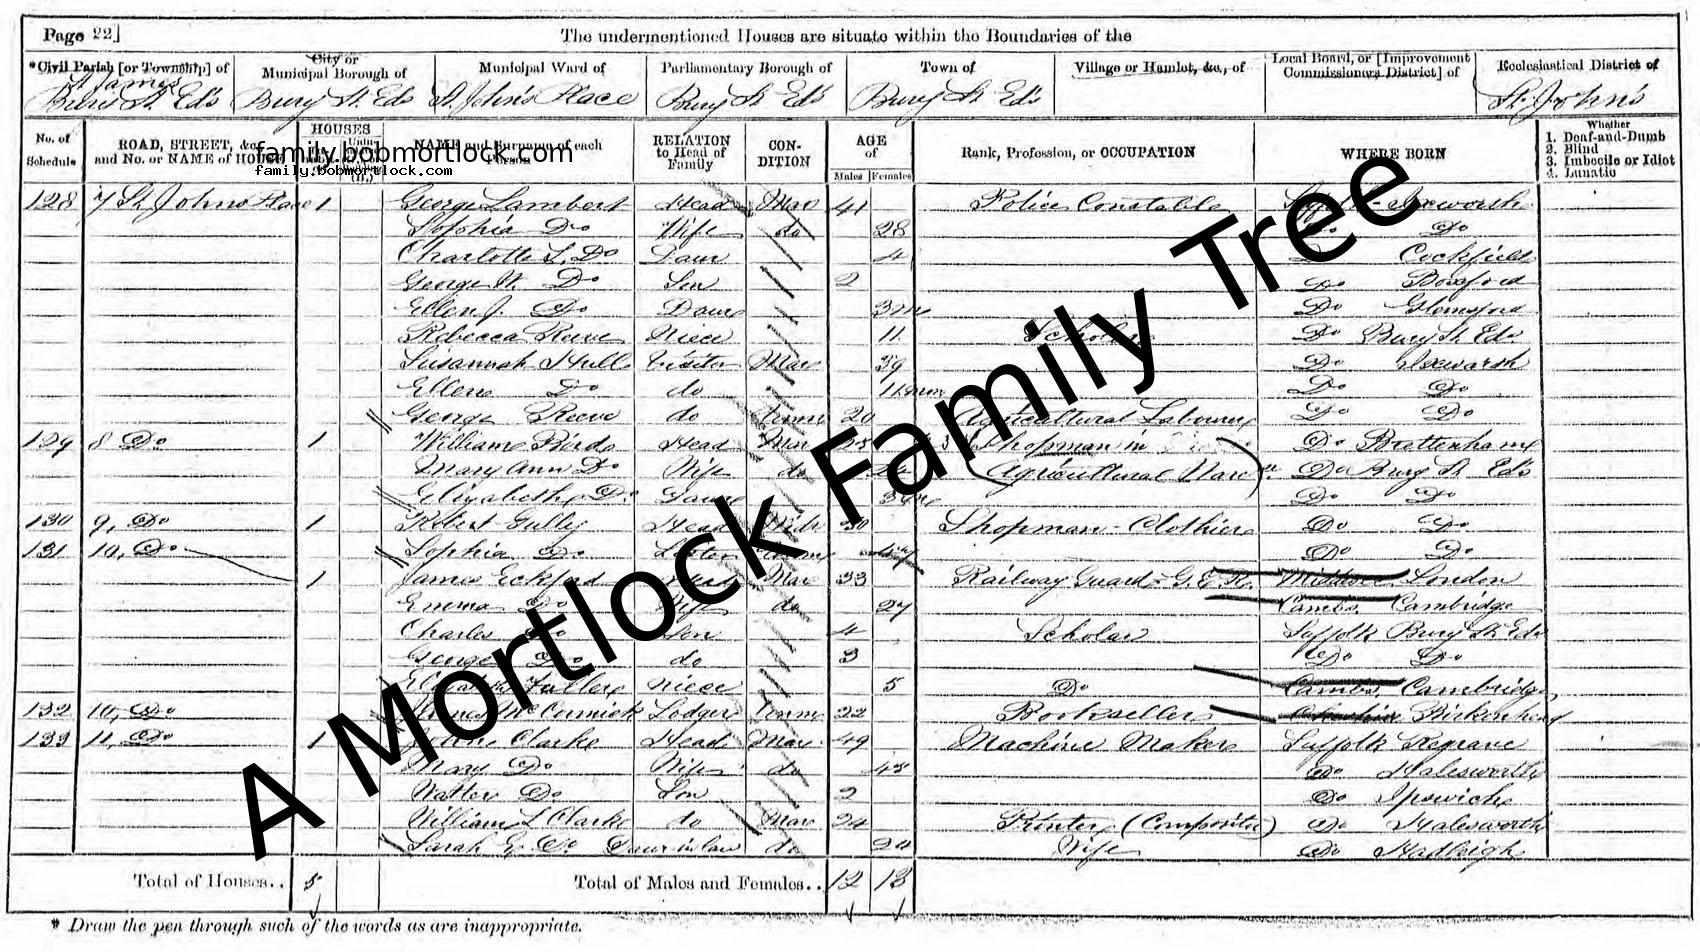 Page 22]
The undermentioned Houses are situate within the Boundaries of the
*Civil Parish [or Township] of
City or Municipal Borough of
Municipal Ward of
Parliamentary Borough of
Town of
Village or Hamlet, &c., of
Local Board, or [Improvement Commissioners District] of
Ecclesiastical District of
St. James Bury St. Eds
Bury St. Eds
St. John's Place
Bury St Eds
Bury St. Eds
St. John's
No. of Schedule
ROAD, STREET, &c., and No. or NAME of HOUSE
HOUSES
NAME and Surname of each Person
RELATION to Head of Family
CONDITION
AGE of
Males
Females
Rank, Profession, or OCCUPATION
WHERE BORN
Whether
1. Deaf-and-Dumb
2. Blind
3. Imbecile or Idiot
4. Lunatic
family.bobmortlock.com
family.bobmortlock.com
128 7 St. Johns Place 1 George Lambert Head Mar 41 Police Constable Ixworth
Sophia Do Wife do 28 Do Do
Charlotte Do Daur 4 Cockfield
George W. Do Son 2 Do Boxford
Ellen J. Do Daur 3 m Do Glemsford
Rebecca Reeve Niece 11 Scholar Do Bury St. Eds
Susannah Hull Visitor Mar 39 Do Ixworth
Ellen Do do Do Do
George Reeve do Unm 20 Agricultural Labourer Do Do
129 8 Do 1 William Head Mar 25 Shopman in Do Brettenham
Mary Ann Do Wife do (Agricultural Do Bury St. Eds
Elizabeth Do Daur Do Do
130 9, Do 1 Robert Gulley Head 30 Shopman - Clothier Do Do
131 10, Do Sophia Do Unm Do Do
1 James Eckford Head Mar 33 Railway Guard G.E.R. London
Emma Do Wife do 27 Cambs. Cambridge
Charles Do Son 4 Scholar Suffolk Bury St. Eds
George Do do 3 Do Do
Fuller Niece 5 Do Cambs. Cambridge
132 10, Do McCormick Lodger Unm 22 Bookseller Birkenhead
133 11, Do 1 Clarke Head Mar 49 Machine Maker Suffolk
Mary Do Wife do 45 Do Halesworth
Walter Do Son 2 Do Ipswich
William Clarke do Mar 24 Printer (Compositor) Do Halesworth
Sarah E. Do Daur in law do Wife Do Hadleigh
Total of Houses.. 5
Total of Males and Females.. 12 13
* Draw the pen through such of the words as are inappropriate.
A Mortlock Family Tree